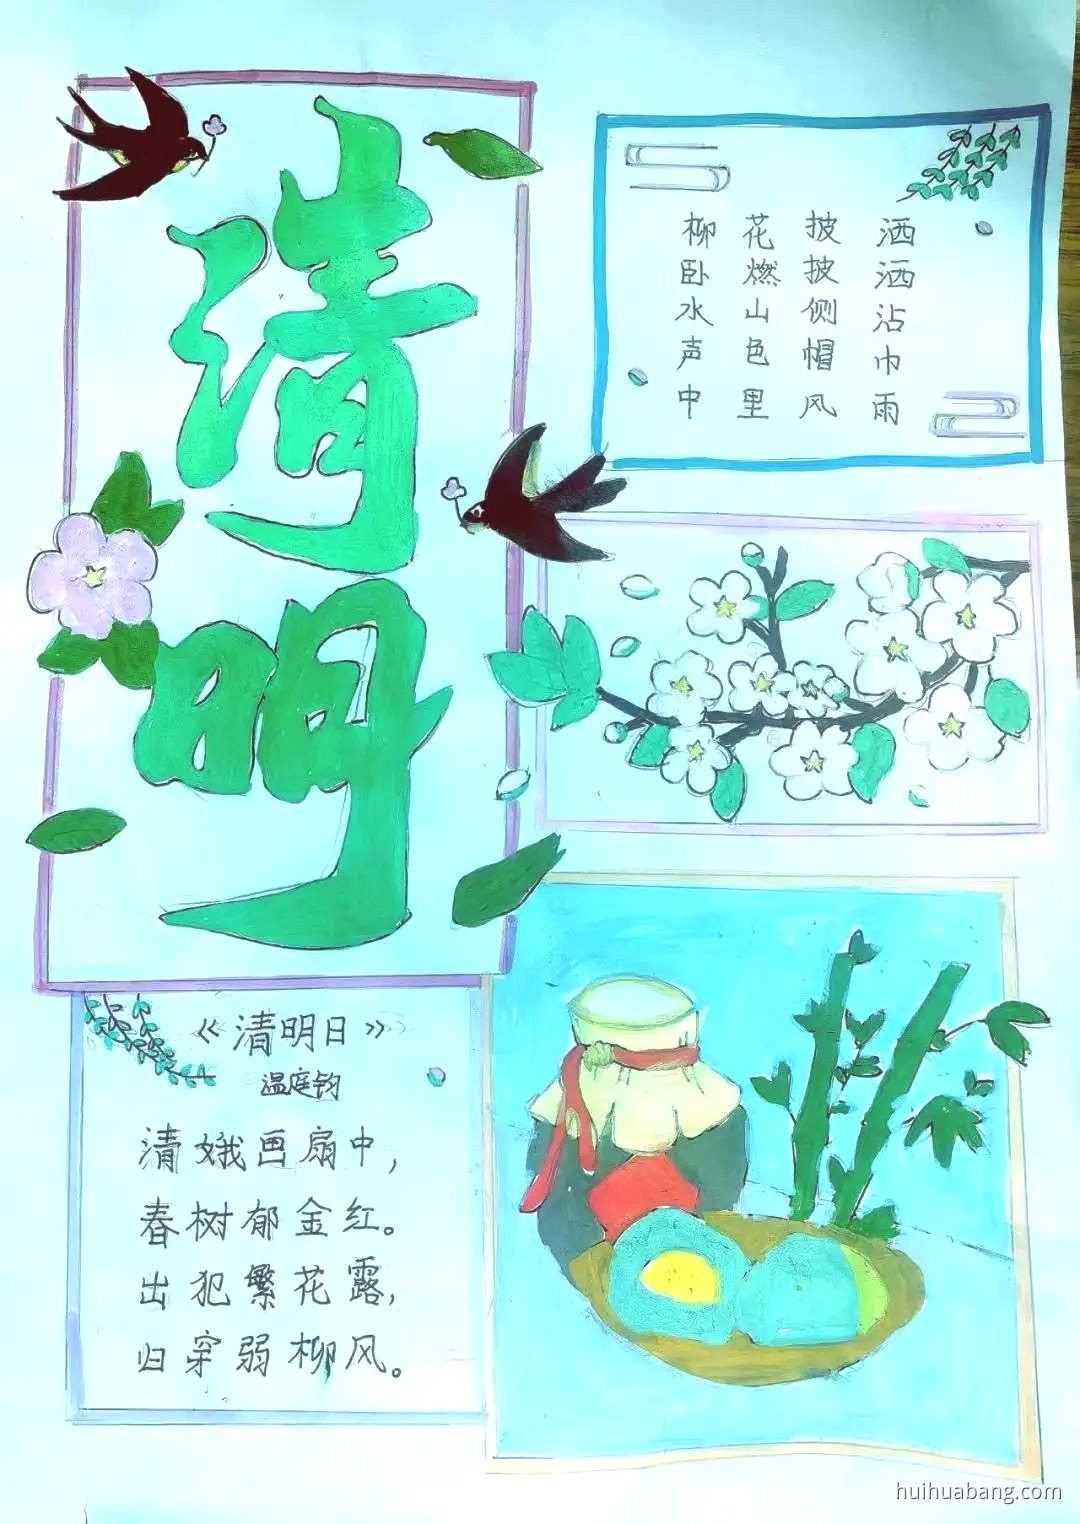 清明
洒洒沾巾雨
披披侧帽风
花燃山色里
柳卧水声中
《清明日》
温庭钧
清娥画扇中,
春树郁金红。
出犯繁花露,
归穿弱柳风。
huihuabang.com